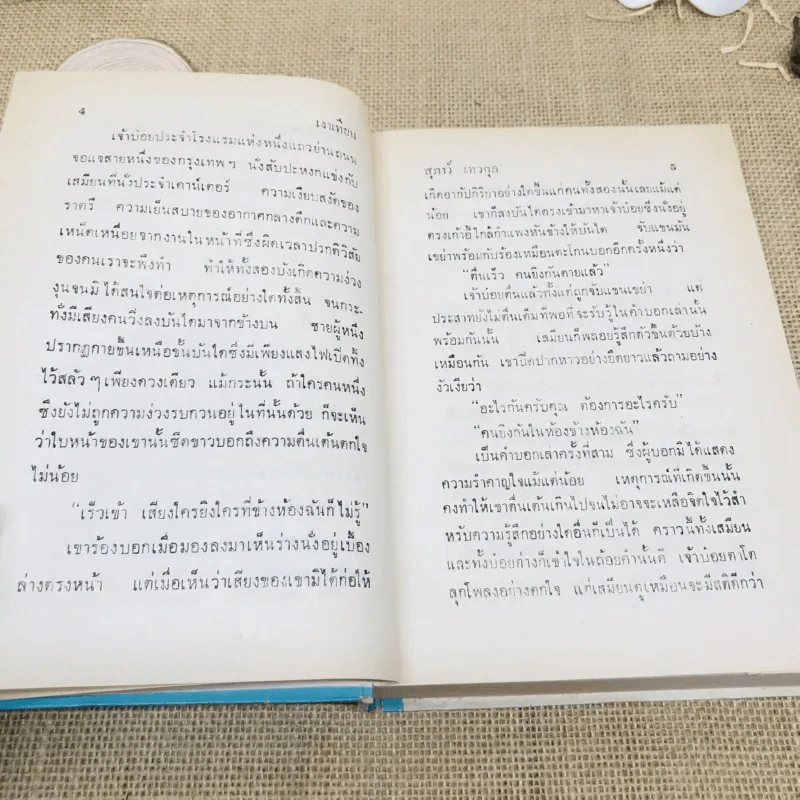 4
เงาเทียน
เจ้าบ๋อยประจำโรงแรมแห่งหนึ่งแถวย่านถนน
จอแจสายหนึ่งของกรุงเทพฯ นั่งสัปะหงกแข่งกับ
เสมียนที่นั่งประจำเคาน์เตอร์ ความเงียบสงัดของ
ราตรี ความเย็นสบายของอากาศกลางดึกและความ
เหน็ดเหนื่อยจากงานในหน้าที่ซึ่งผิดเวลาปรกติวิสัย
ของคนเราจะพึงทำ ทำให้ทั้งสองบังเกิดความง่วง
งุนจนมิได้สนใจต่อเหตุการณ์อย่างใดทั้งสิ้น จนกระ-
ทั่งมีเสียงคนวิ่งลงบันไดมาจากข้างบน ชายผู้หนึ่ง
ปรากฏกายขึ้นเหนือขั้นบันไดซึ่งมีเพียงแสงไฟเปิดทิ้ง
ไว้สลัวๆเพียงดวงเดียว แม้กระนั้น ถ้าใครคนหนึ่ง
ซึ่งยังไม่ถูกความง่วงรบกวนอยู่ในที่นั้นด้วย ก็จะเห็น
ว่าใบหน้าของเขานั้นซีดขาวบอกถึงความตื่นเต้นตกใจ
ไม่น้อย
“เร็วเข้า เสียงใครยิงใครที่ข้างห้องฉันก็ไม่รู้”
เขาร้องบอกเมื่อมองลงมาเห็นร่างนั่งอยู่เบื้อง
ล่างตรงหน้า แต่เมื่อเห็นว่าเสียงของเขามิได้ก่อให้
สุภาว์ เทวกุล
5
เกิดอากัปกิริยาอย่างใดขึ้นแก่คนทั้งสองนั้นเลยแม้แต่
น้อย เขาก็ลงบันไดตรงเข้ามาหาเจ้าบ๋อยซึ่งนั่งอยู่
ตรงเก้าอี้ใกล้กำแพงหันข้างให้บันได จับแขนมัน
เขย่าพร้อมกับร้องเหมือนตะโกนบอกอีกครั้งหนึ่งว่า
“ตื่นเร็ว คนยิงกันตายแล้ว”
เจ้าบ๋อยตื่นแล้วตั้งแต่ถูกจับแขนเขย่า แต่
ประสาทยังไม่ตื่นเต็มที่พอที่จะรับรู้ในคำบอกเล่านั้น
พร้อมกันนั้น เสมียนก็พลอยรู้สึกตัวขึ้นด้วยบ้าง
เหมือนกัน เขาปิดปากหาวอย่างยืดยาวแล้วถามอย่าง
งัวเงียว่า
“อะไรกันครับคุณ ต้องการอะไรครับ”
“คนยิงกันในห้องข้างห้องฉัน”
เป็นคำบอกเล่าครั้งที่สาม ซึ่งผู้บอกมิได้แสดง
ความรำคาญใจแม้แต่น้อย เหตุการณ์ที่เกิดขึ้นนั้น
คงทำให้เขาตื่นเต้นเกินไปจนไม่อาจจะเหลือจิตใจไว้สำ
หรับความรู้สึกอย่างใดอื่นก็เป็นได้ คราวนี้ทั้งเสมียน
และทั้งบ๋อยต่างก็เข้าใจในถ้อยคำนั้นดี เจ้าบ๋อยตาโต
ลุกโพลงอย่างตกใจ แต่เสมียนดูเหมือนจะมีสติดีกว่า